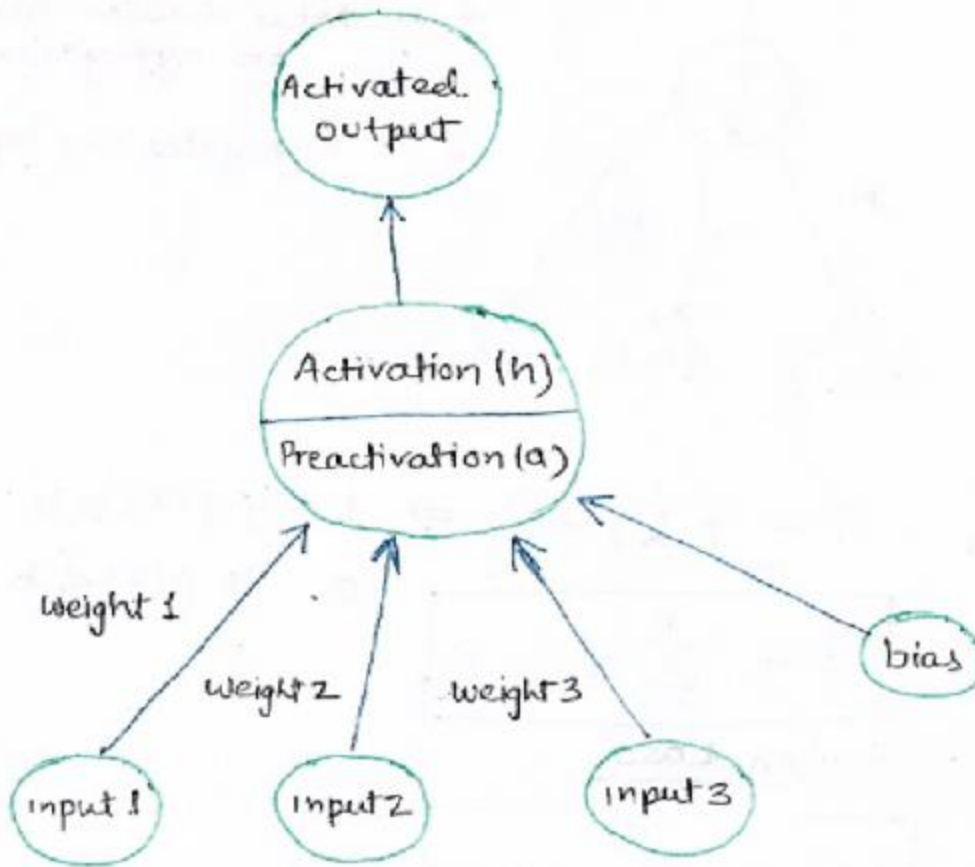 Activated
output
Activation (h)
Preactivation (a)
weight 1
weight 2
weight 3
bias
input 1
input 2
input 3